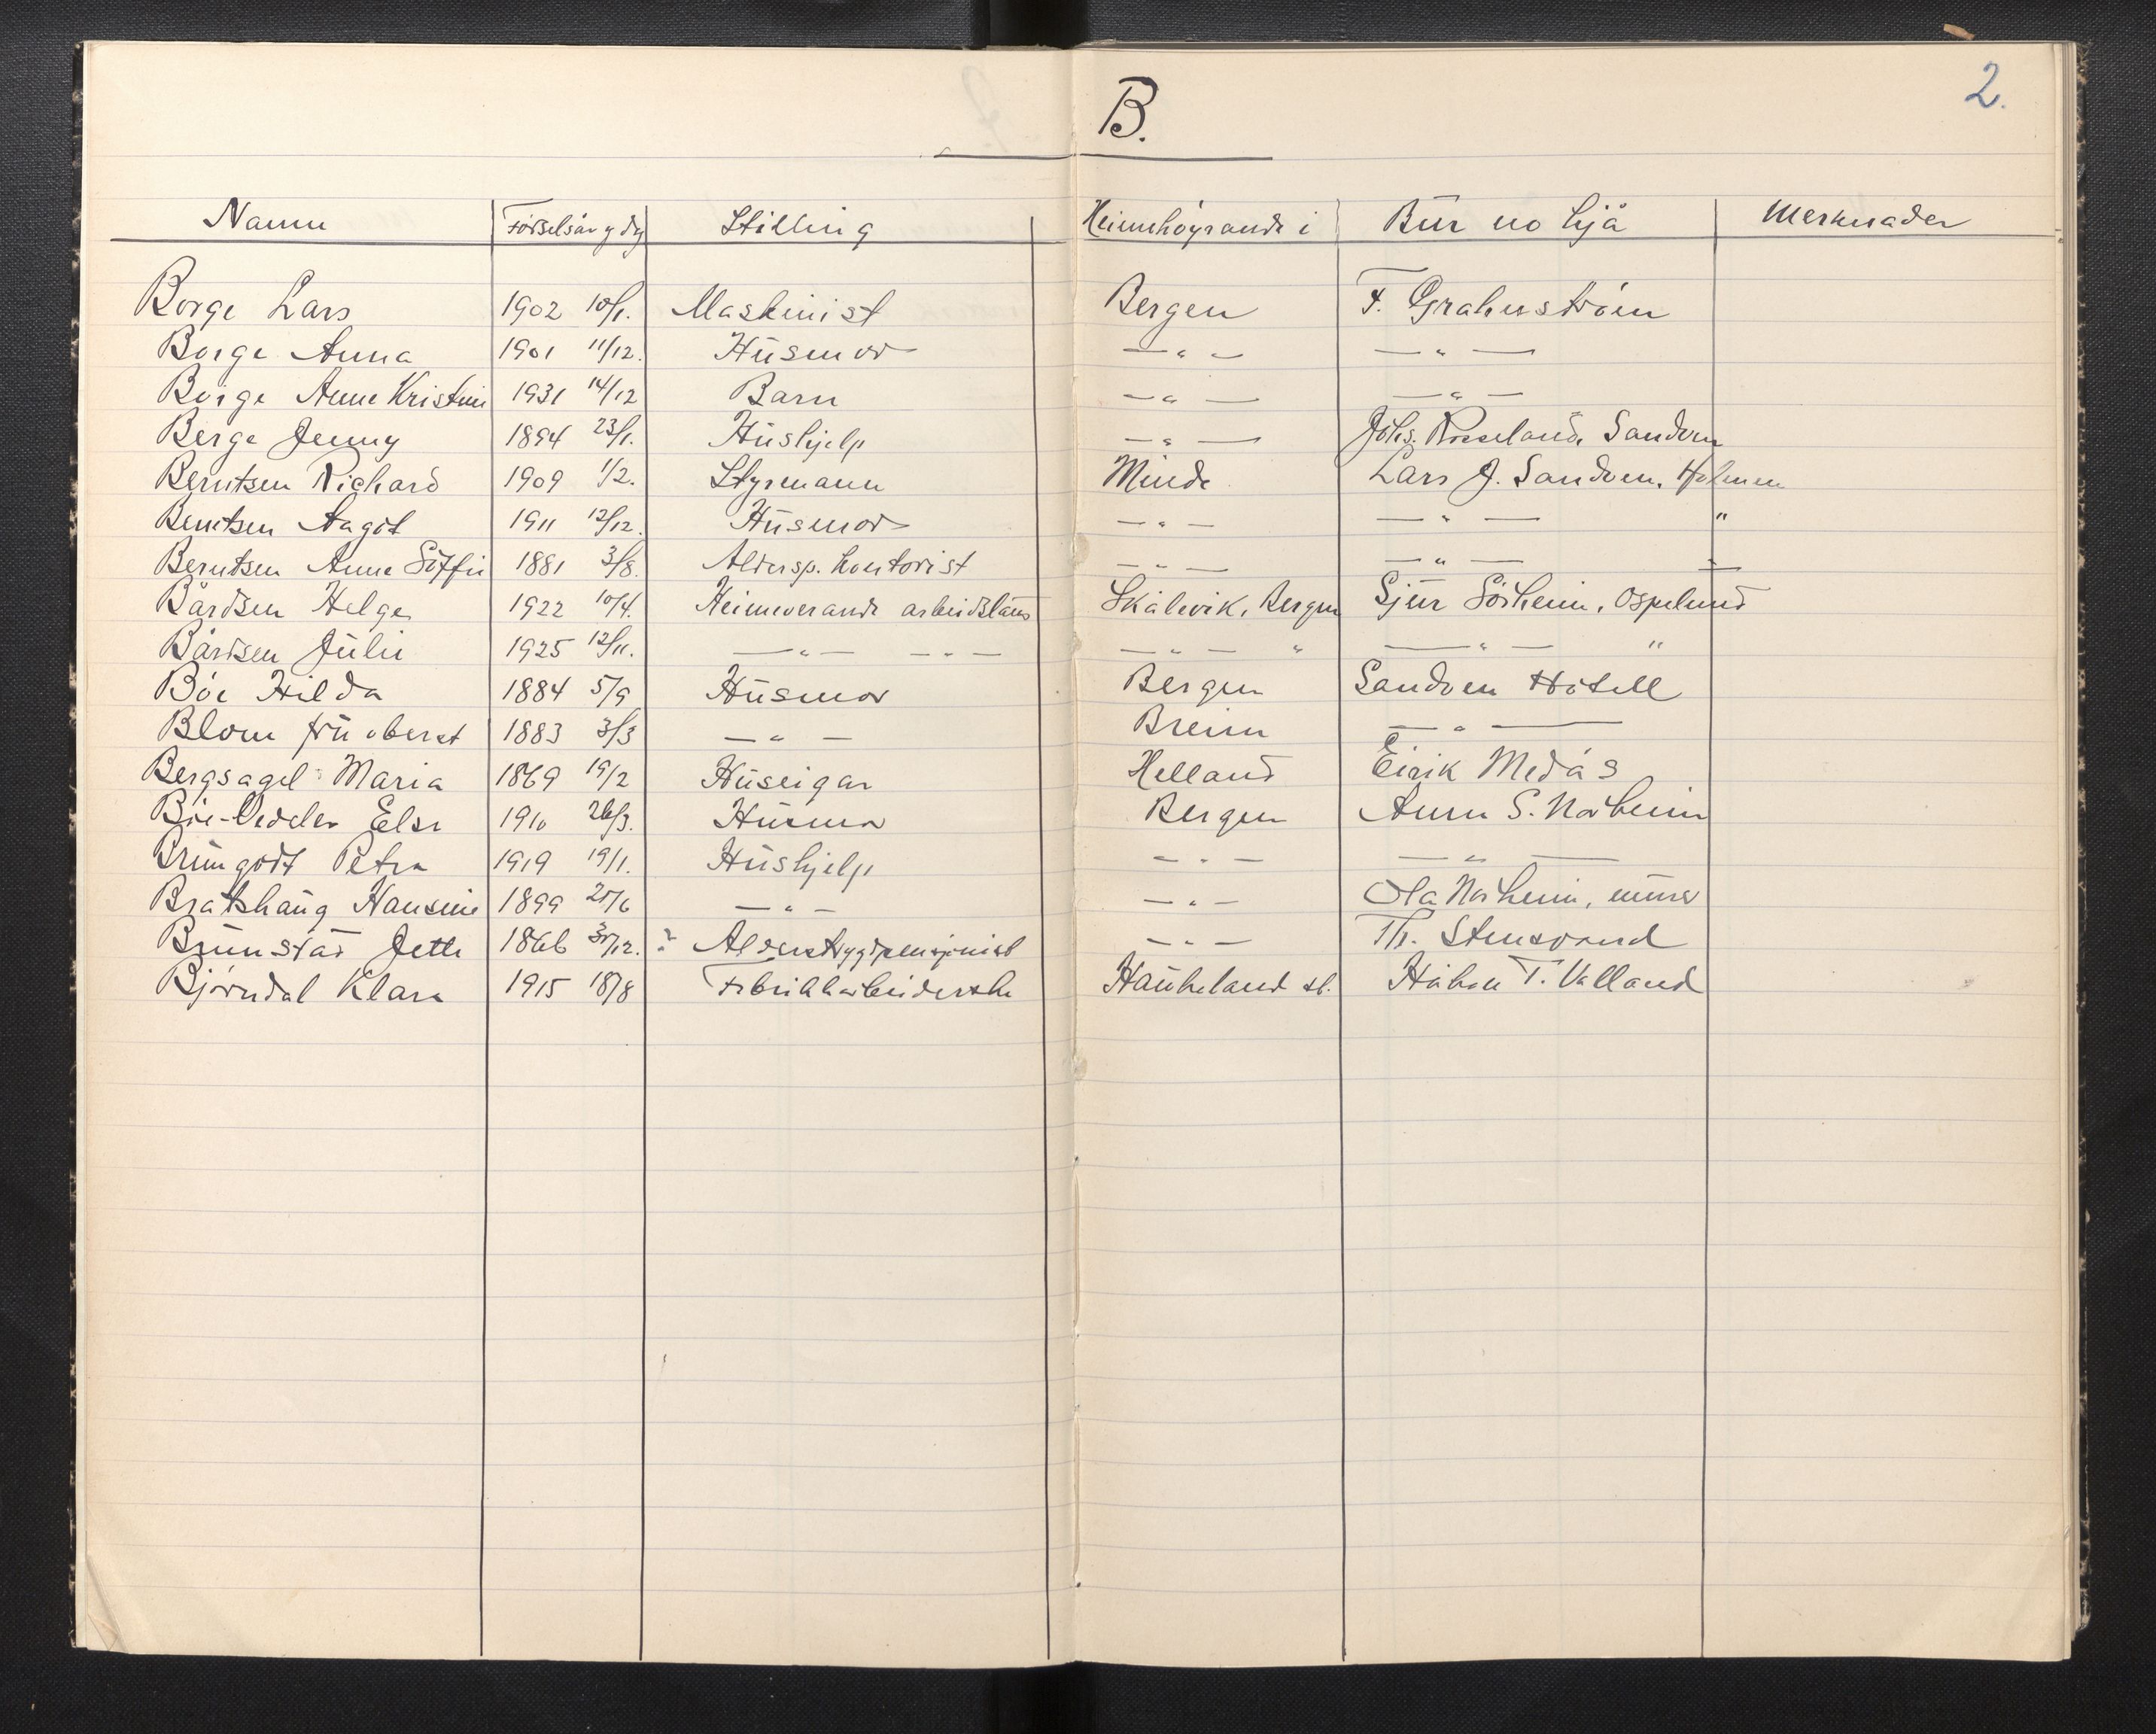 2.
B.
Namn Fødselsår og dag Stilling Heimehøyrande i Bur no hjå Merknader
Borge Lars 1902 10/1. Maskinist Bergen F. Grahnström
Borge Anna 1901 11/12. Husmor — " — — " —
Borge Anne Kristine 1931 14/12 Barn — " — — " —
Berge Jenny 1894 23/1. Hushjelp — " — Johs. Rosseland, Sandven
Berntsen Richard 1909 1/2. Styrmann Minde Lars J. Sandven, Holmen
Berntsen Aagot 1911 12/12. Husmor — " — — " — "
Berntsen Anne Soffie 1881 3/8. Aldersp. kontorist — " — — " —
Bårdsen Helge 1922 10/4. Heimeverande arbeidslaus Skålevik, Bergen Sjur Sörheim, Ospelund
Bårdsen Julie 1925 12/11. — " — — " — — " — " — " — "
Böe Hilda 1884 5/9 Husmor Bergen Sandven Hotell
Blom fru oberst 1883 3/3 — " — Breim — " —
Bergsagel Maria 1869 19/2 Huseigar Helland Eirik Medås
Böe-Vedeler Else 1910 26/3. Husmor Bergen Aurn S. Norheim
Brungodt Petra 1919 19/1. Hushjelp — " — — " —
Bratshaug Hansine 1899 25/6 — " — — " — Ola Norheim, murer
Brunstad Jette 1866 31/12. Alderstrygdpensjonist — " — Th. Stensvand
Björndal Klara 1915 18/8 Fabrikkarbeiderske Haukeland st. Håkon T. Valland